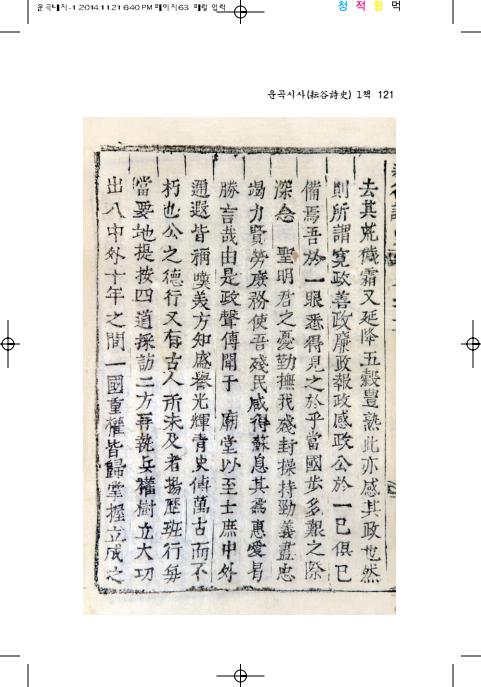 운곡내지-1 2014.11.21 6:40 PM 페이지63 매일 입력
청 적 황 먹
운곡시사(耘谷詩史) 1책 121
去其荒穢霜又延降五穀豊熟此亦感其政也然
則所謂寬政善政廉政報政感政公於一己俱已
備焉吾於一眼悉得見之於乎當國步多艱之際
深念 聖明君之憂勤撫我殘封操持勁義盡忠
竭力賢勞庶務使吾殘民咸得蘇息其爲惠愛曷
勝言哉由是政聲傳聞于 廟堂以至士庶中外
邇遐皆稱嘆美方知盛譽光輝靑史傳萬古而不
朽也公之德行又有古人所未及者揚歷班行每
當要地提按四道採訪二方再執兵權樹立大功
出入中外十年之間一國重權皆歸掌握立成之